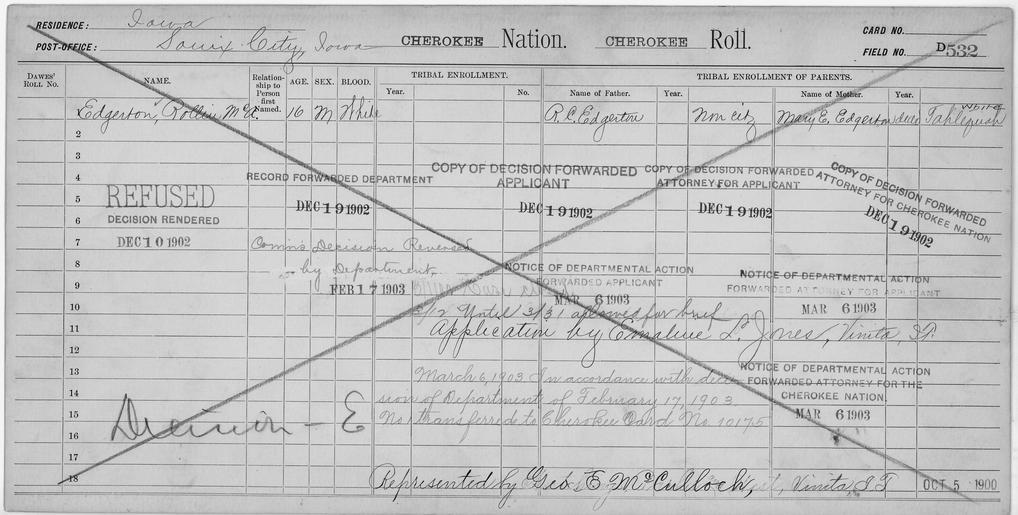 RESIDENCE: Iowa
POST-OFFICE: Souix City, Iowa
CHEROKEE Nation. CHEROKEE Roll.
CARD NO.
FIELD NO. D532
DAWES' ROLL NO. NAME. Relationship to Person first Named. AGE. SEX. BLOOD. TRIBAL ENROLLMENT. TRIBAL ENROLLMENT OF PARENTS.
Year. No. Name of Father. Year. Name of Mother. Year.
Edgerton, Rollin McA. 16 M White R.C. Edgerton Non citz Mary E. Edgerton decd Tahlequah
2
3
4 RECORD FORWARDED DEPARTMENT COPY OF DECISION FORWARDED APPLICANT COPY OF DECISION FORWARDED ATTORNEY FOR APPLICANT COPY OF DECISION FORWARDED ATTORNEY FOR CHEROKEE NATION
5 REFUSED DEC 19 1902 DEC 19 1902 DEC 19 1902 DEC 19 1902
6 DECISION RENDERED
7 DEC 10 1902 Com'n's Decision Reversed
8 by Department NOTICE OF DEPARTMENTAL ACTION FORWARDED APPLICANT NOTICE OF DEPARTMENTAL ACTION FORWARDED ATTORNEY FOR APPLICANT
9 FEB 17 1903 MAR 6 1903 MAR 6 1903
10 3/12 Until 3/31 allowed for brief
11 Application by Emaline L. Jones, Vinita, I.T.
12
13 March 6, 1903 In accordance with deci- NOTICE OF DEPARTMENTAL ACTION FORWARDED ATTORNEY FOR THE CHEROKEE NATION.
14 sion of Department of February 17, 1903
15 No 1 transferred to Cherokee Card No. 10175 MAR 6 1903
16 Decision - E
17
18 Represented by Geo. E. McCulloch, Vinita I T OCT 5 1900